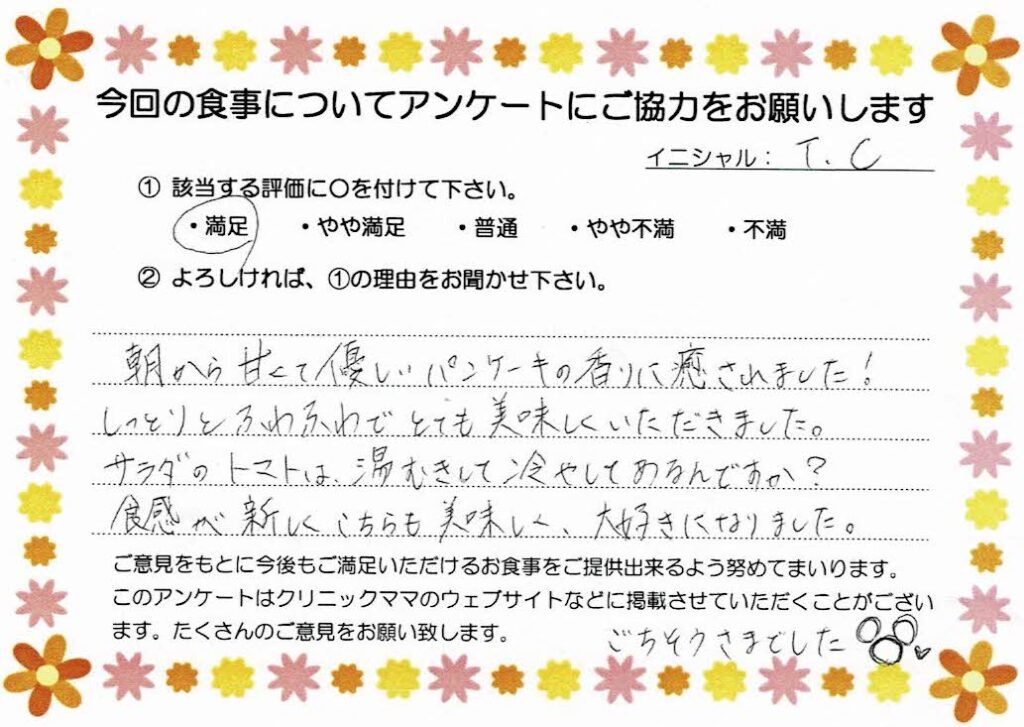 今回の食事についてアンケートにご協力をお願いします
イニシャル： T. C
① 該当する評価に〇を付けて下さい。
・満足 ・やや満足 ・普通 ・やや不満 ・不満
② よろしければ、①の理由をお聞かせ下さい。
朝から甘くて優しいパンケーキの香りに癒されました!
しっとりとふわふわでとても美味しくいただきました。
サラダのトマトは、湯むきして冷やしてあるんですか?
食感が新しくこちらも美味しく、大好きになりました。
ご意見をもとに今後もご満足いただけるお食事をご提供出来るよう努めてまいります。
このアンケートはクリニックママのウェブサイトなどに掲載させていただくことがござい
ます。たくさんのご意見をお願い致します。
ごちそうさまでした